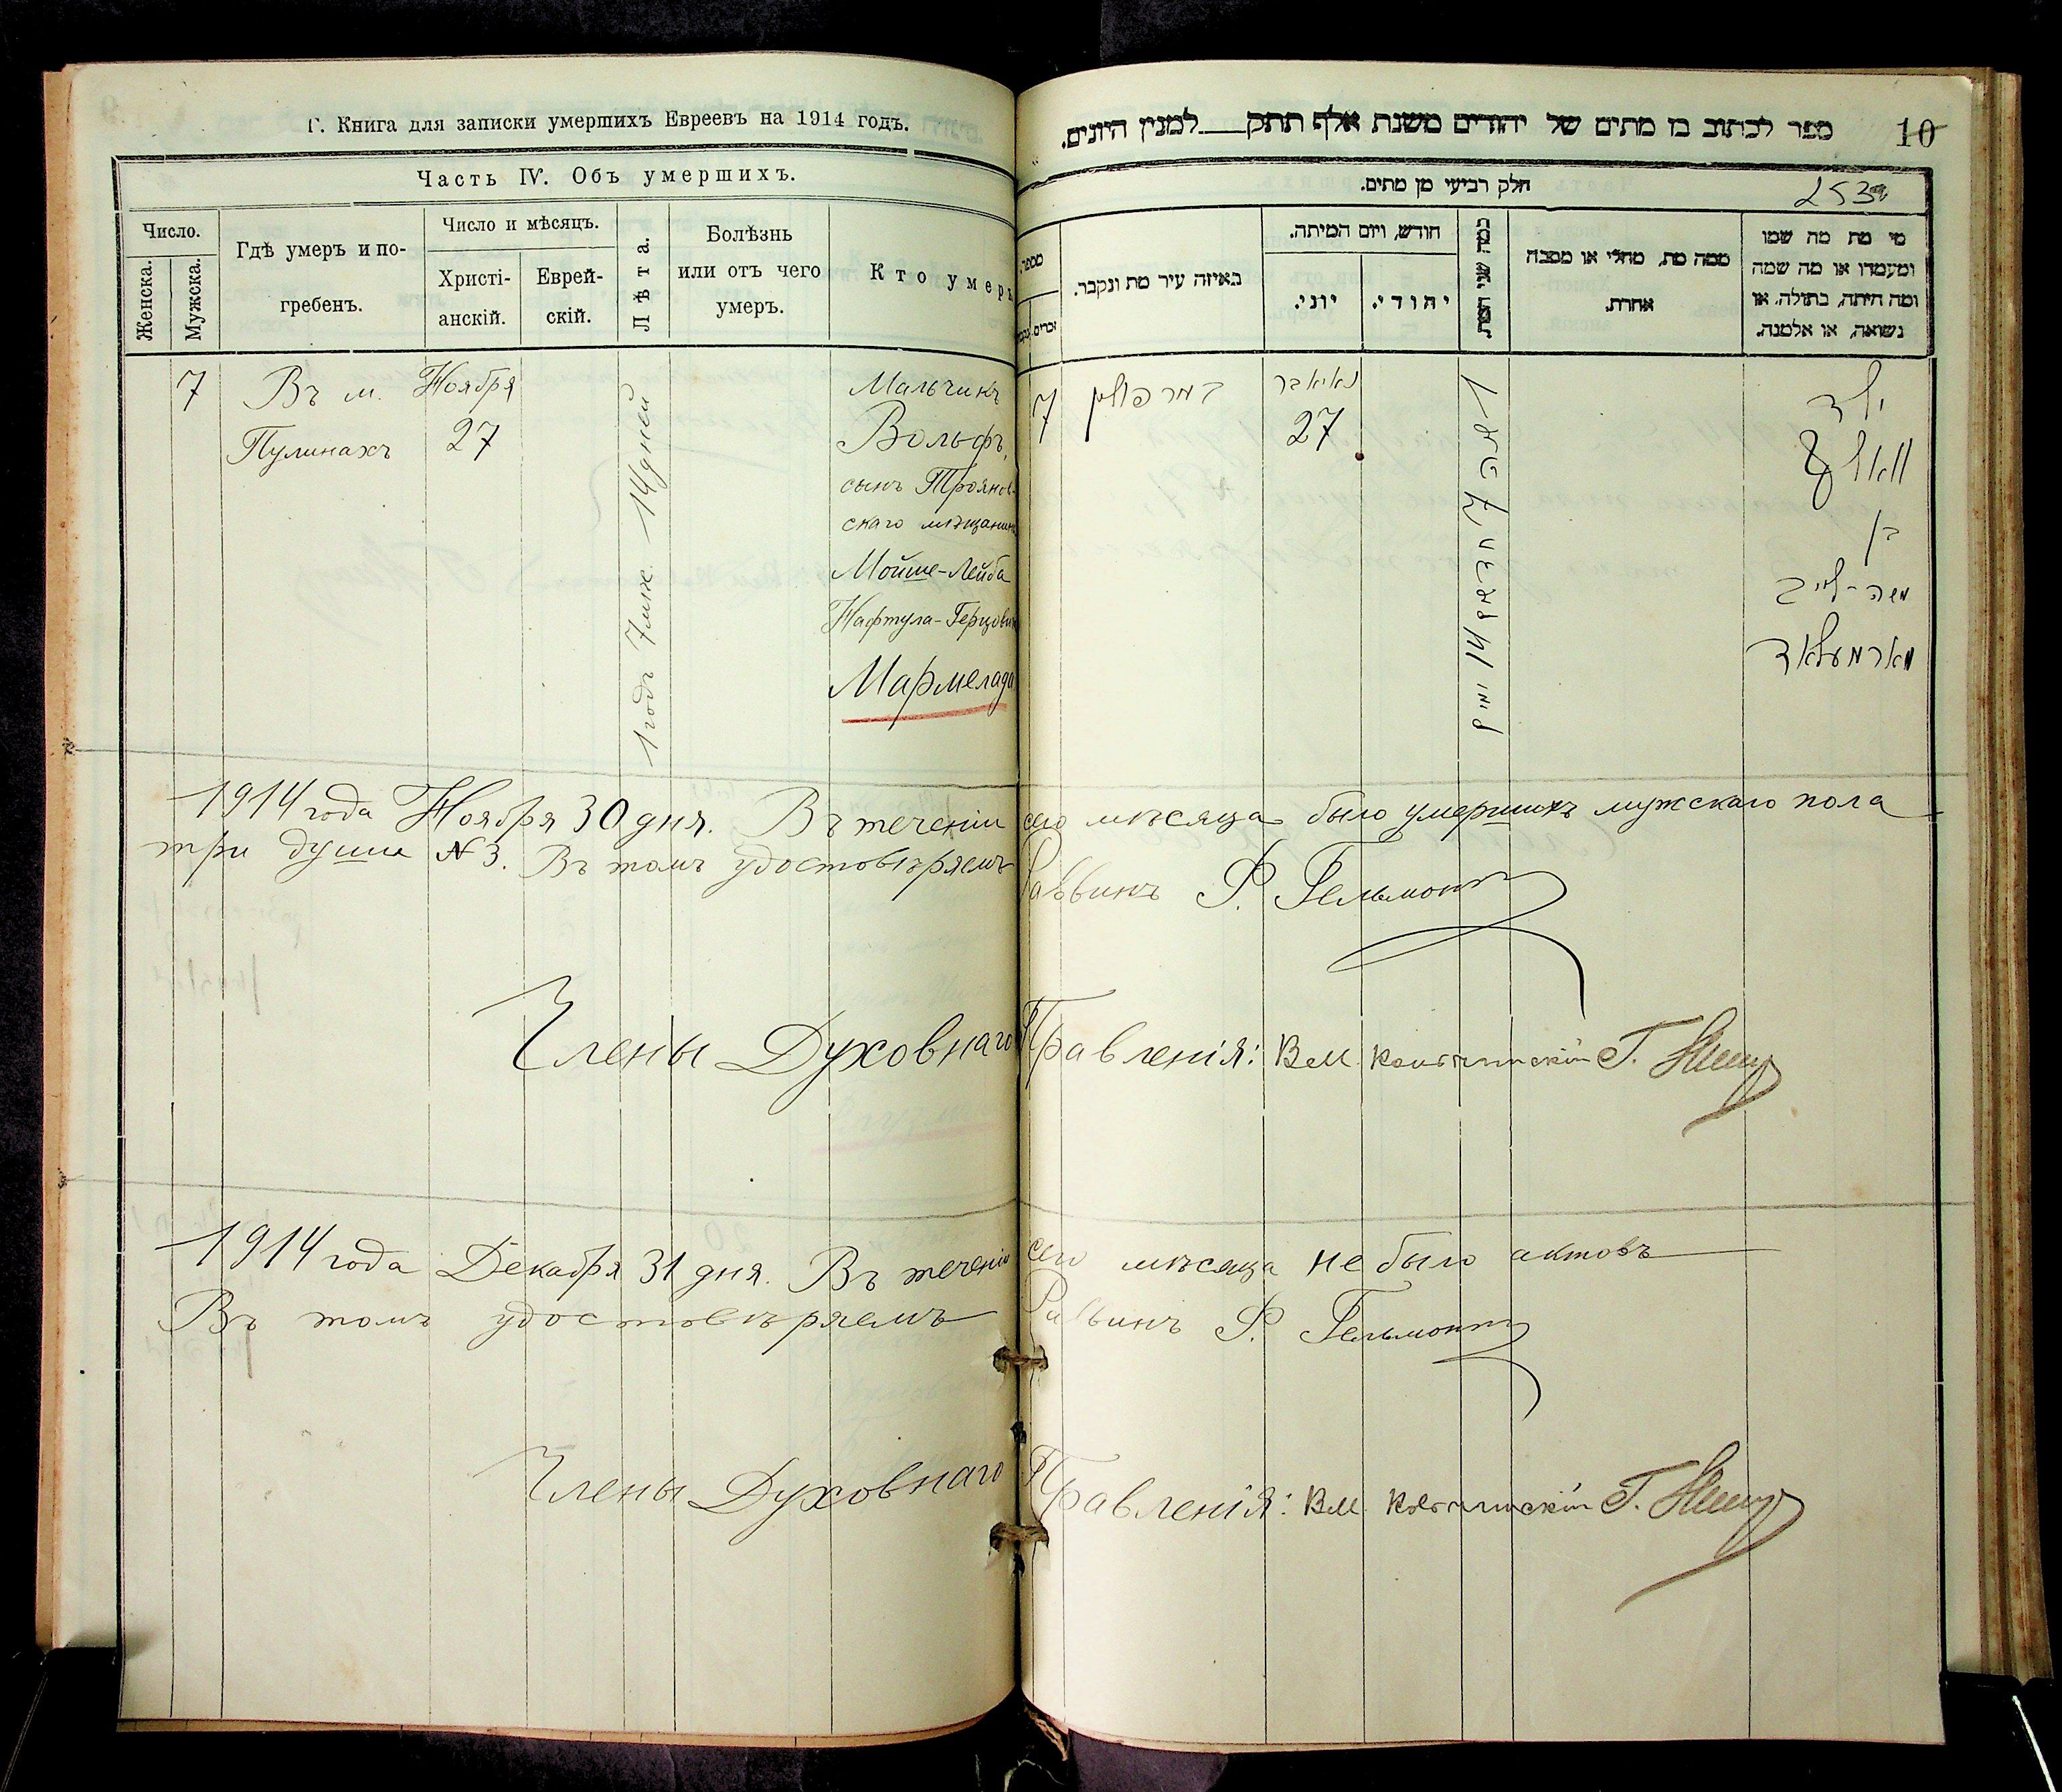 Г. Книга для записки умершихъ Евреевъ на 1914 годъ.
Часть IV. Объ умершихъ.
Число.
Женска.
Мужска.
Гдѣ умеръ и по-
гребенъ.
Число и мѣсяцъ.
Христі-
анскій.
Еврей-
скій.
Лѣта.
Болѣзнь
или отъ чего
умеръ.
Кто умеръ
7
Въ м.
Пулинахъ
Ноября
27
1 годъ 7 мѣс. 14 дней
Мальчикъ
Вольфъ,
сынъ Троянов-
скаго мѣщанина
Мойше-Лейба
Нафтула-Герцовича
Мармелада
ספר לכתוב בו מתים של יהודים משנת אלף תתק למנין היונים.
10
חלק רביעי מן מתים.
253
מספר.
זכרים.
באיזה עיר מת ונקבר.
חודש, ויום המיתה.
יוני.
יהודי.
כמה שני המת.
ממה מת, מחלי או מסבה
אחרת.
מי מת מה שמו
ומעמדו או מה שמה
ומה היתה, בתולה, או
נשואה, או אלמנה.
7
נאיאבר
27
ילד
וואלף
בן
משה-לייב
מארמעלאד
1914 года Ноября 30 дня. Въ теченіи сего мѣсяца было умершихъ мужскаго пола
три души №3. Въ томъ удостовѣряемъ Раввинъ Ф. Гельмонт
Члены Духовнаго Правленія: В.М. Г.
1914 года Декабря 31 дня. Въ теченіи сего мѣсяца не было актовъ
Въ томъ удостовѣряемъ Раввинъ Ф. Гельмонт
Члены Духовнаго Правленія: В.М. Г.